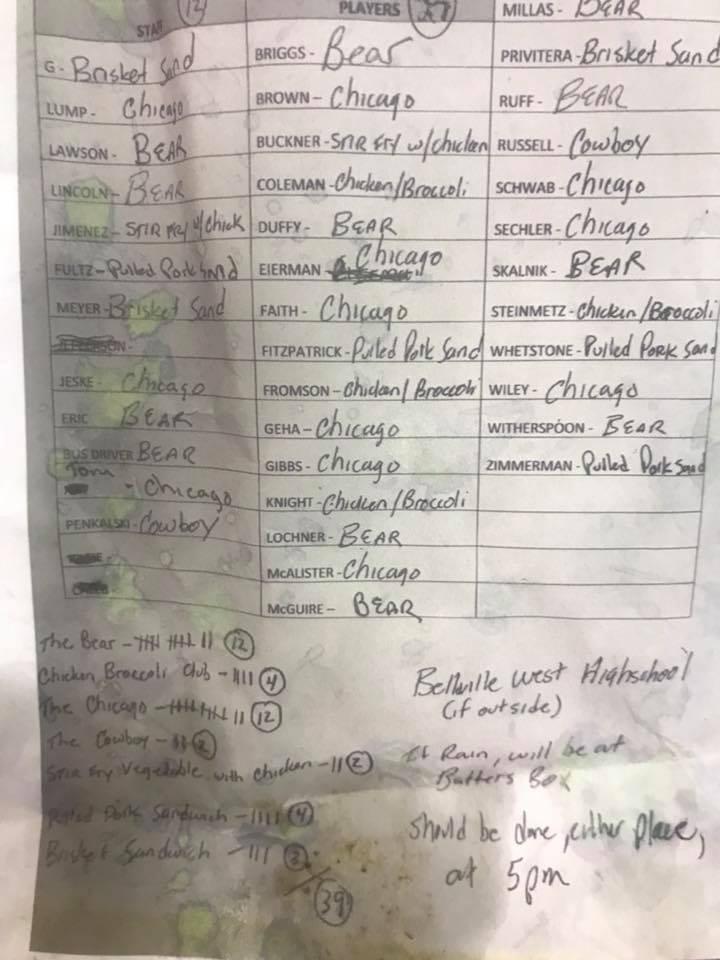 STAFF (12)
G- Brisket Sand
LUMP - Chicago
LAWSON - BEAR
LINCOLN - BEAR
JIMENEZ - STIR FRY w/ Chick
FULTZ - Pulled Pork Sand
MEYER - Brisket Sand
JEFFERSON -
JESKE - Chicago
ERIC BEAR
BUS DRIVER BEAR
Tom - Chicago
PENKALSKI - Cowboy
PLAYERS (27)
BRIGGS - Bear
BROWN - Chicago
BUCKNER - STIR FRY w/chicken
COLEMAN - Chicken/Broccoli
DUFFY - BEAR
EIERMAN - Chicago
FAITH - Chicago
FITZPATRICK - Pulled Pork Sand
FROMSON - Chicken/Broccoli
GEHA - Chicago
GIBBS - Chicago
KNIGHT - Chicken/Broccoli
LOCHNER - BEAR
McALISTER - Chicago
McGUIRE - BEAR
MILLAS - BEAR
PRIVITERA - Brisket Sand
RUFF - BEAR
RUSSELL - Cowboy
SCHWAB - Chicago
SECHLER - Chicago
SKALNIK - BEAR
STEINMETZ - Chicken/Broccoli
WHETSTONE - Pulled Pork Sand
WILEY - Chicago
WITHERSPOON - BEAR
ZIMMERMAN - Pulled Pork Sand
The Bear - 12
Chicken Broccoli Club - 4
The Chicago - 12
The Cowboy - 2
Stir Fry Vegetable with Chicken - 2
Pulled Pork Sandwich - 4
Brisket Sandwich - 3
39
Bellville West Highschool
(if outside)
If Rain, will be at
Batters Box
should be done, either place,
at 5pm